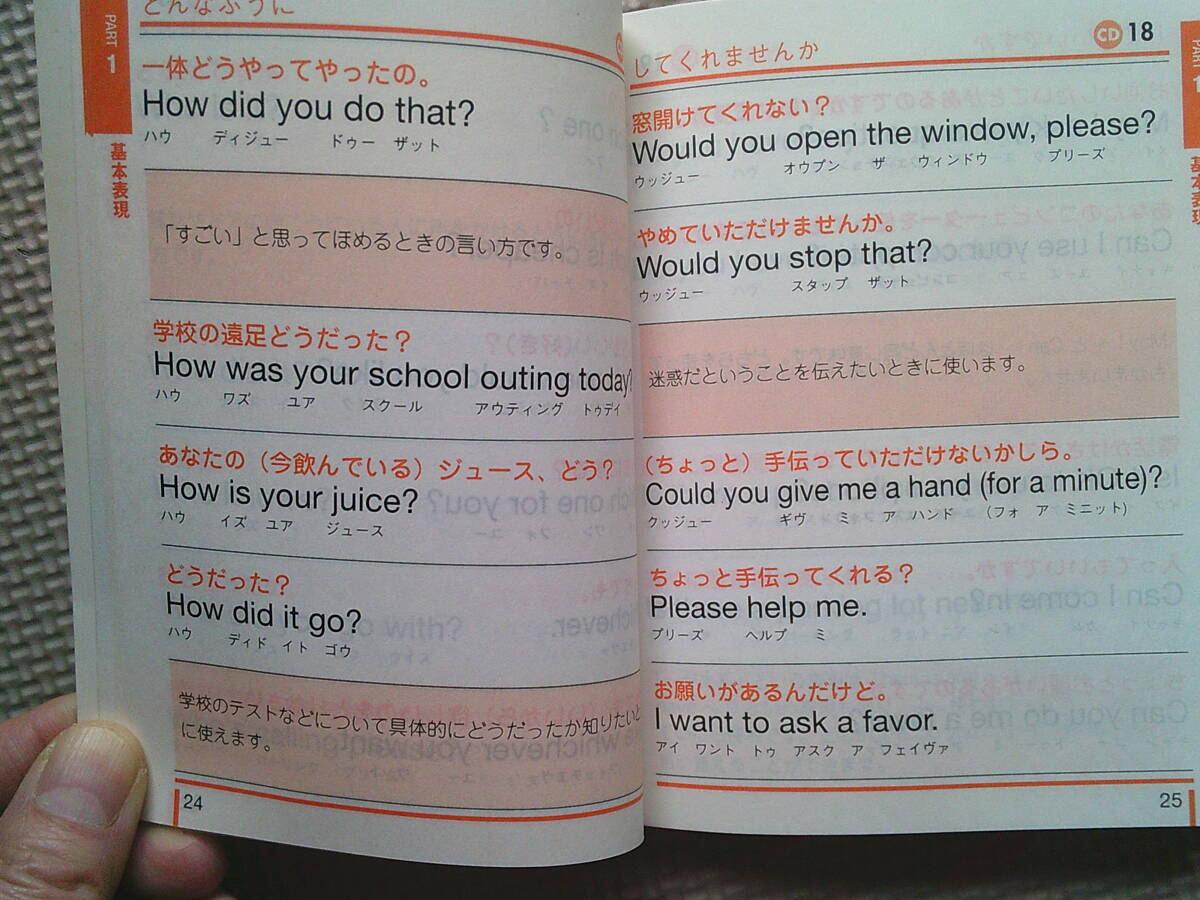 どんなふうに
PART 1
基本表現
一体どうやってやったの。
How did you do that?
ハウ ディジュー ドゥー ザット
「すごい」と思ってほめるときの言い方です。
学校の遠足どうだった？
How was your school outing today?
ハウ ワズ ユア スクール アウティング トゥデイ
あなたの（今飲んでいる）ジュース、どう？
How is your juice?
ハウ イズ ユア ジュース
どうだった？
How did it go?
ハウ ディド イト ゴウ
学校のテストなどについて具体的にどうだったか知りたいと
に使えます。
24
CD 18
してくれませんか
窓開けてくれない？
Would you open the window, please?
ウッジュー オウプン ザ ウィンドウ プリーズ
やめていただけませんか。
Would you stop that?
ウッジュー スタップ ザット
迷惑だということを伝えたいときに使います。
（ちょっと）手伝っていただけないかしら。
Could you give me a hand (for a minute)?
クッジュー ギヴ ミ ア ハンド （フォ ア ミニット）
ちょっと手伝ってくれる？
Please help me.
プリーズ ヘルプ ミ
お願いがあるんだけど。
I want to ask a favor.
アイ ワント トゥ アスク ア フェイヴァ
25
基本表現